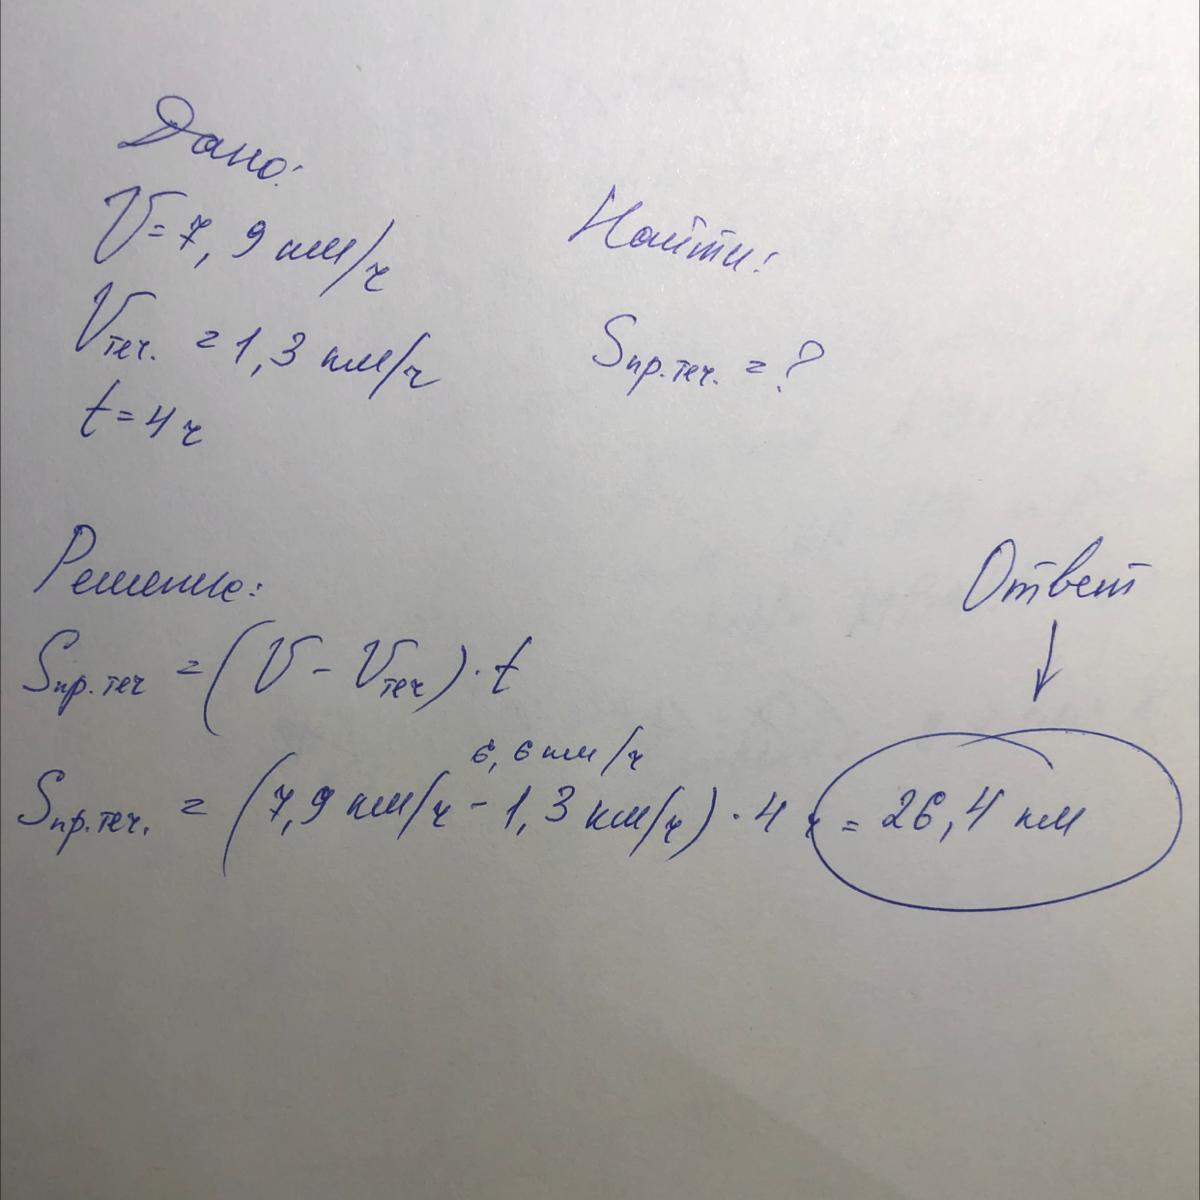 Дано:
V = 7,9 км/ч
Vтеч. = 1,3 км/ч
t = 4 ч
Найти:
Sпр.теч. = ?
Решение:
Sпр.теч = (V - Vтеч) · t
6,6 км/ч
Sпр.теч. = (7,9 км/ч - 1,3 км/ч) · 4 ч = 26,4 км
Ответ